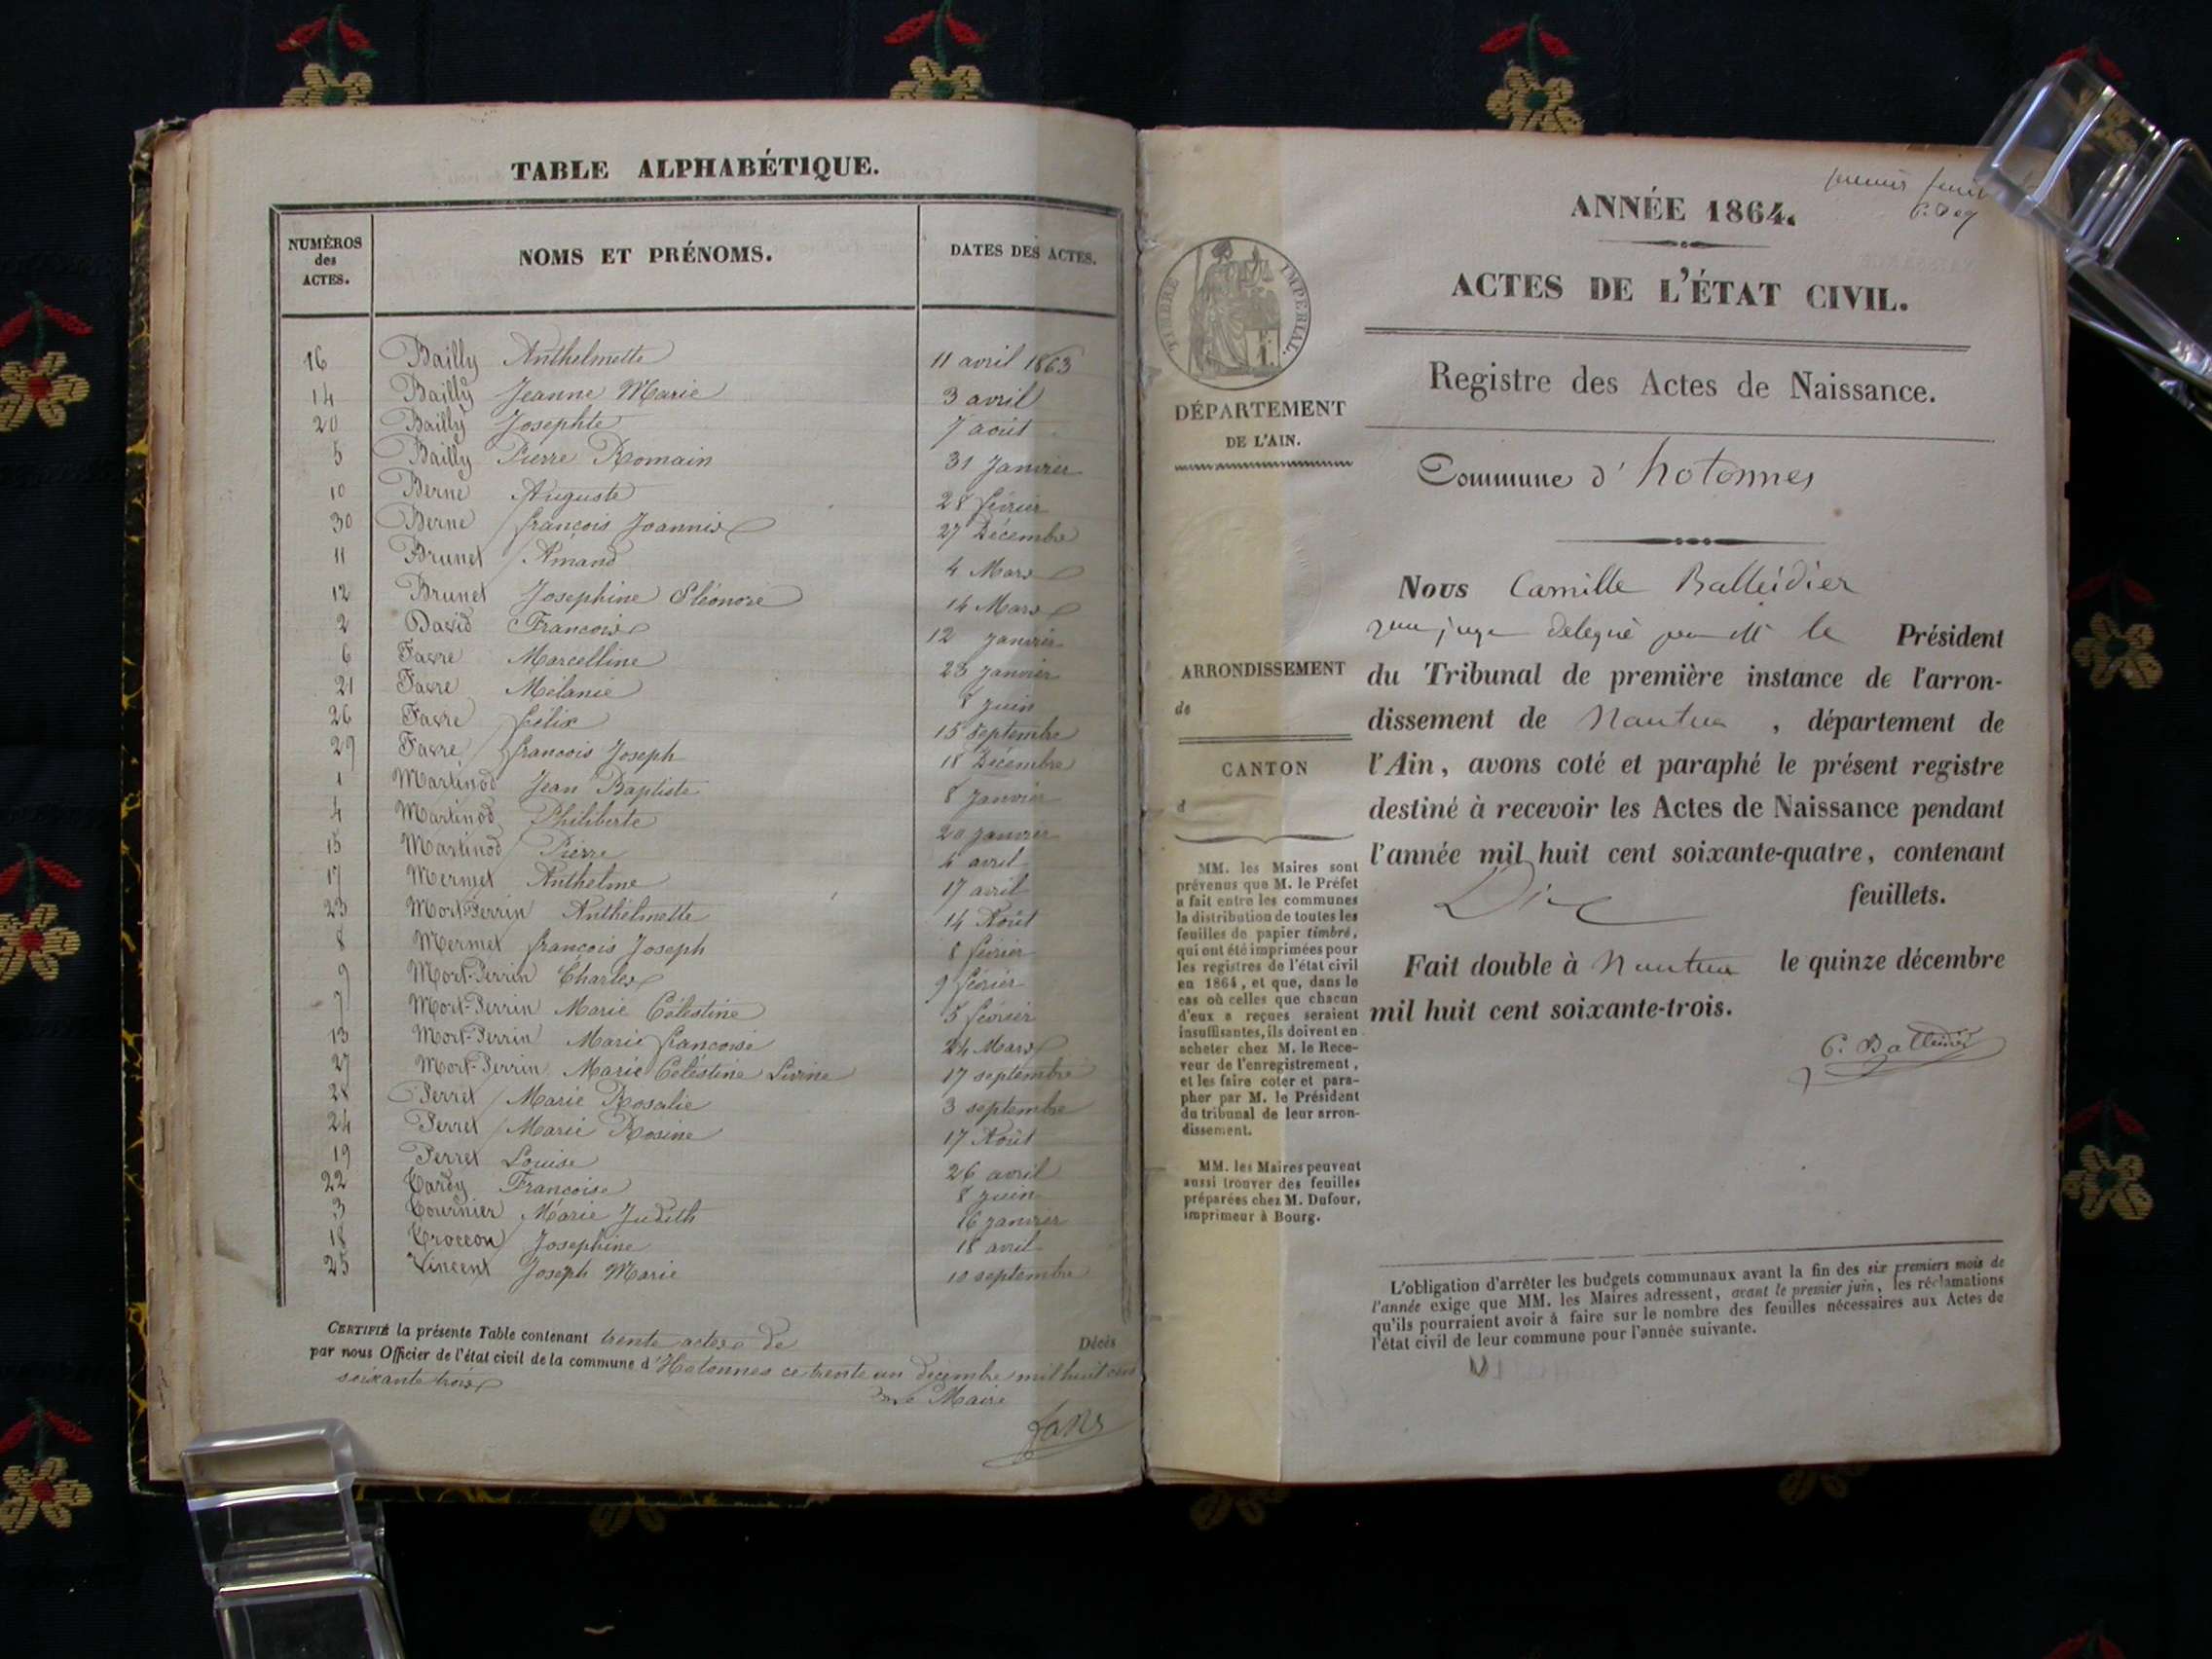 TABLE ALPHABÉTIQUE.
NUMÉROS des ACTES. NOMS ET PRÉNOMS. DATES DES ACTES.
16 Bailly Anthelmette 11 avril 1863
14 Bailly Jeanne Marie 3 avril
20 Bailly Josephte 7 août
5 Bailly Pierre Romain 31 Janvier
10 Berne Auguste 28 février
30 Berne françois Joannix 27 Décembre
11 Brunet Amand 4 Mars
12 Brunet Josephine Eléonore 14 Mars
2 David François 12 janvier
6 Favre Marcelline 23 janvier
21 Favre Mélanie 8 juin
26 Favre félix 15 septembre
29 Favre françois Joseph 18 Décembre
1 Martinod Jean Baptiste 8 Janvier
4 Martinod Philiberte 20 janvier
15 Martinod Pierre 6 avril
17 Mermet Anthelme 17 avril
23 Mort-Perrin Anthelmette 14 Août
8 Mermet françois Joseph 8 février
9 Mort-Perrin Charles 9 février
7 Mort-Perrin Marie Célestine 5 février
13 Mort-Perrin Marie francoise 24 Mars
27 Mort-Perrin Marie Célestine Livine 17 septembre
28 Perret Marie Rosalie 3 septembre
24 Perret Marie Rosine 17 Août
19 Perret Louise 26 avril
22 Tardy Francoise 8 juin
3 Tournier Marie Judith 16 janvier
18 Troccon Josephine 18 avril
25 Vincent Joseph Marie 10 septembre
CERTIFIÉ la présente Table contenant trente actes de Décès
par nous Officier de l'état civil de la commune d'Hotonnes ce trente un decembre mil huit cent
soixante trois
Le Maire
premier
ANNÉE 1864.
ACTES DE L'ÉTAT CIVIL.
Registre des Actes de Naissance.
Commune d'hotonnes
TIMBRE IMPÉRIAL.
DÉPARTEMENT
DE L'AIN.
ARRONDISSEMENT
de
CANTON
d
MM. les Maires sont
prévenus que M. le Préfet
a fait entre les communes
la distribution de toutes les
feuilles de papier timbré,
qui ont été imprimées pour
les registres de l'état civil
en 1864, et que, dans le
cas où celles que chacun
d'eux a reçues seraient
insuffisantes, ils doivent en
acheter chez M. le Rece-
veur de l'enregistrement,
et les faire coter et para-
pher par M. le Président
du tribunal de leur arron-
dissement.
MM. les Maires peuvent
aussi trouver des feuilles
préparées chez M. Dufour,
imprimeur à Bourg.
Nous Camille Balleidier
juge delegué par M le Président
du Tribunal de première instance de l'arron-
dissement de Nantua, département de
l'Ain, avons coté et paraphé le présent registre
destiné à recevoir les Actes de Naissance pendant
l'année mil huit cent soixante-quatre, contenant
Dix feuillets.
Fait double à Nantua le quinze décembre
mil huit cent soixante-trois.
C. Balleidier
L'obligation d'arrêter les budgets communaux avant la fin des six premiers mois de
l'année exige que MM. les Maires adressent, avant le premier juin, les réclamations
qu'ils pourraient avoir à faire sur le nombre des feuilles nécessaires aux Actes de
l'état civil de leur commune pour l'année suivante.